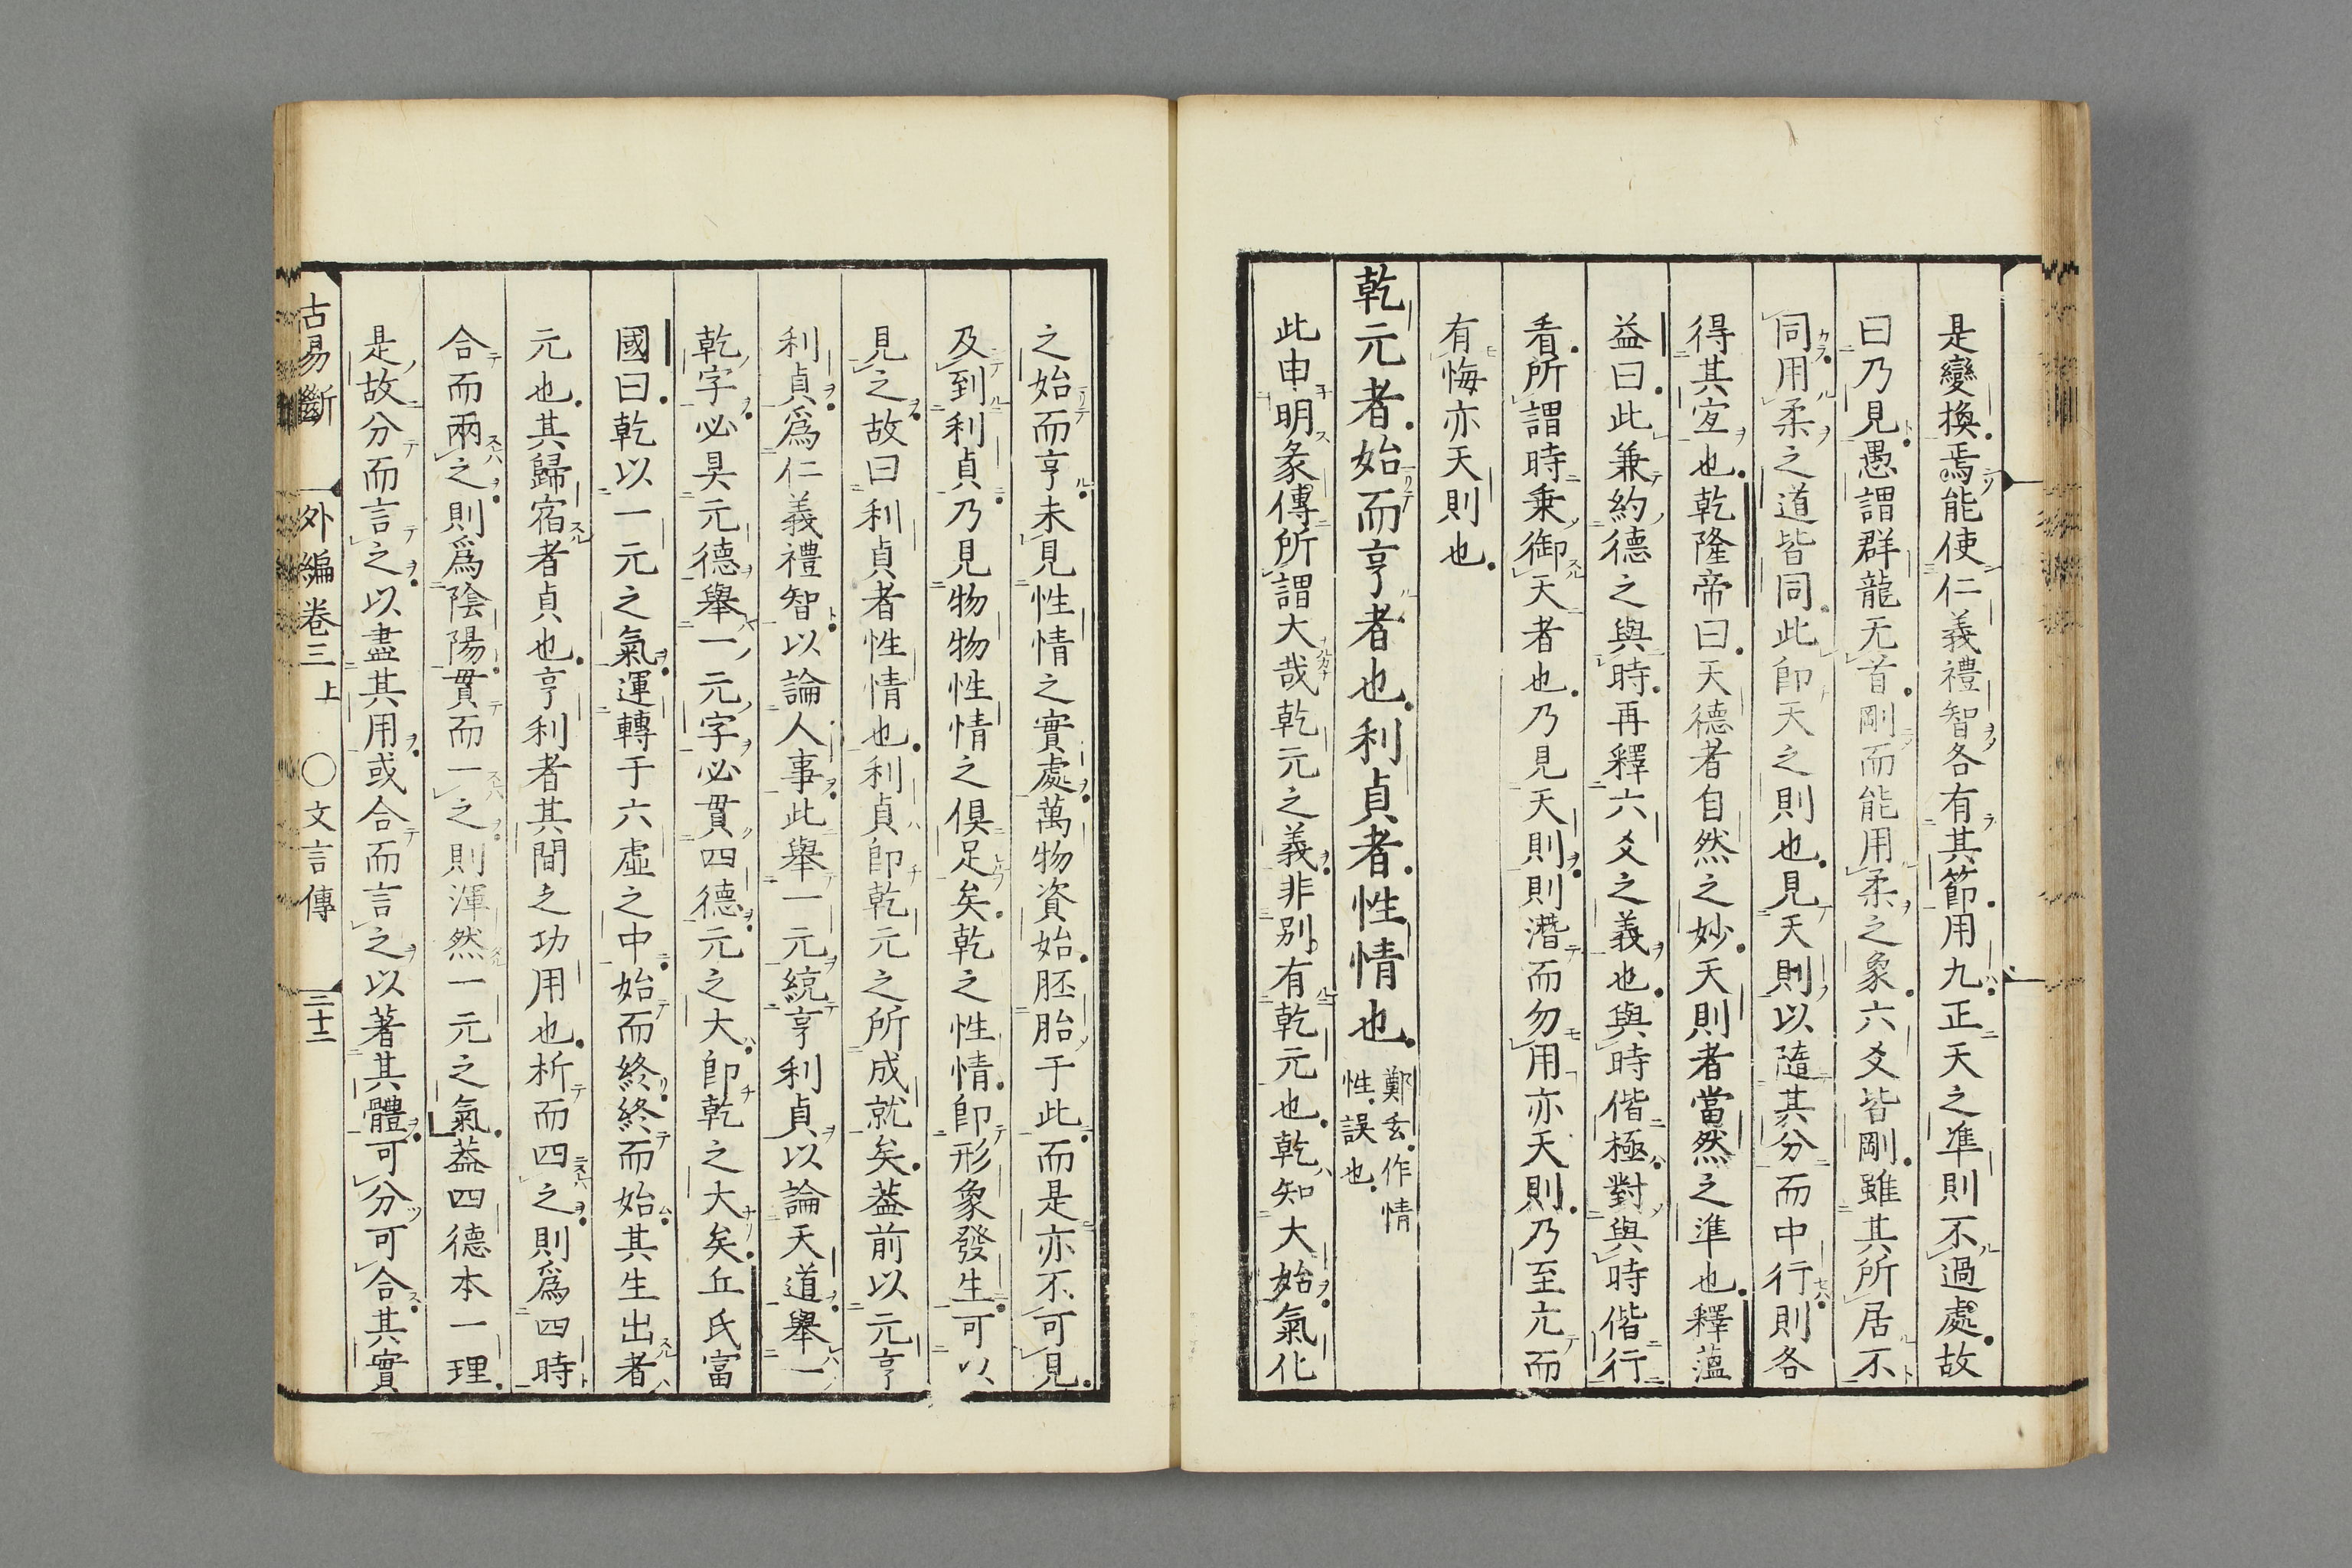 是變換焉能使仁義禮智各有其節用九正天之準則不過處故
曰乃見愚謂群龍无首剛而能用柔之象六爻皆剛雖其所居不
同用柔之道皆同此卽天之則也見天則以隨其分而中行則各
得其宜也乾隆帝曰天德者自然之妙天則者當然之準也釋蕰
益曰此兼約德之與時再釋六爻之義也與時偕極對與時偕行
看所謂時乗御天者也乃見天則則潛而勿用亦天則乃至亢而
有悔亦天則也
乾元者始而亨者也利貞者性情也
鄭玄作情
性誤也
此申明彖傳所謂大哉乾元之義非別有乾元也乾知大始氣化
之始而亨未見性情之實處萬物資始胚胎于此而是亦不可見
及到利貞乃見物物性情之俱足矣乾之性情卽形象發生可以
見之故曰利貞者性情也利貞卽乾元之所成就矣葢前以元亨
利貞爲仁義禮智以論人事此舉一元統亨利貞以論天道舉一
乾字必具元德舉一元字必貫四德元之大卽乾之大矣丘氏富
國曰乾以一元之氣運轉于六虛之中始而終終而始其生出者
元也其歸宿者貞也亨利者其間之功用也析而四之則爲四時
合而兩之則爲陰陽貫而一之則渾然一元之氣葢四德本一理
是故分而言之以盡其用或合而言之以著其體可分可合其實
古易斷 外編卷三上 〇文言傳 三十二